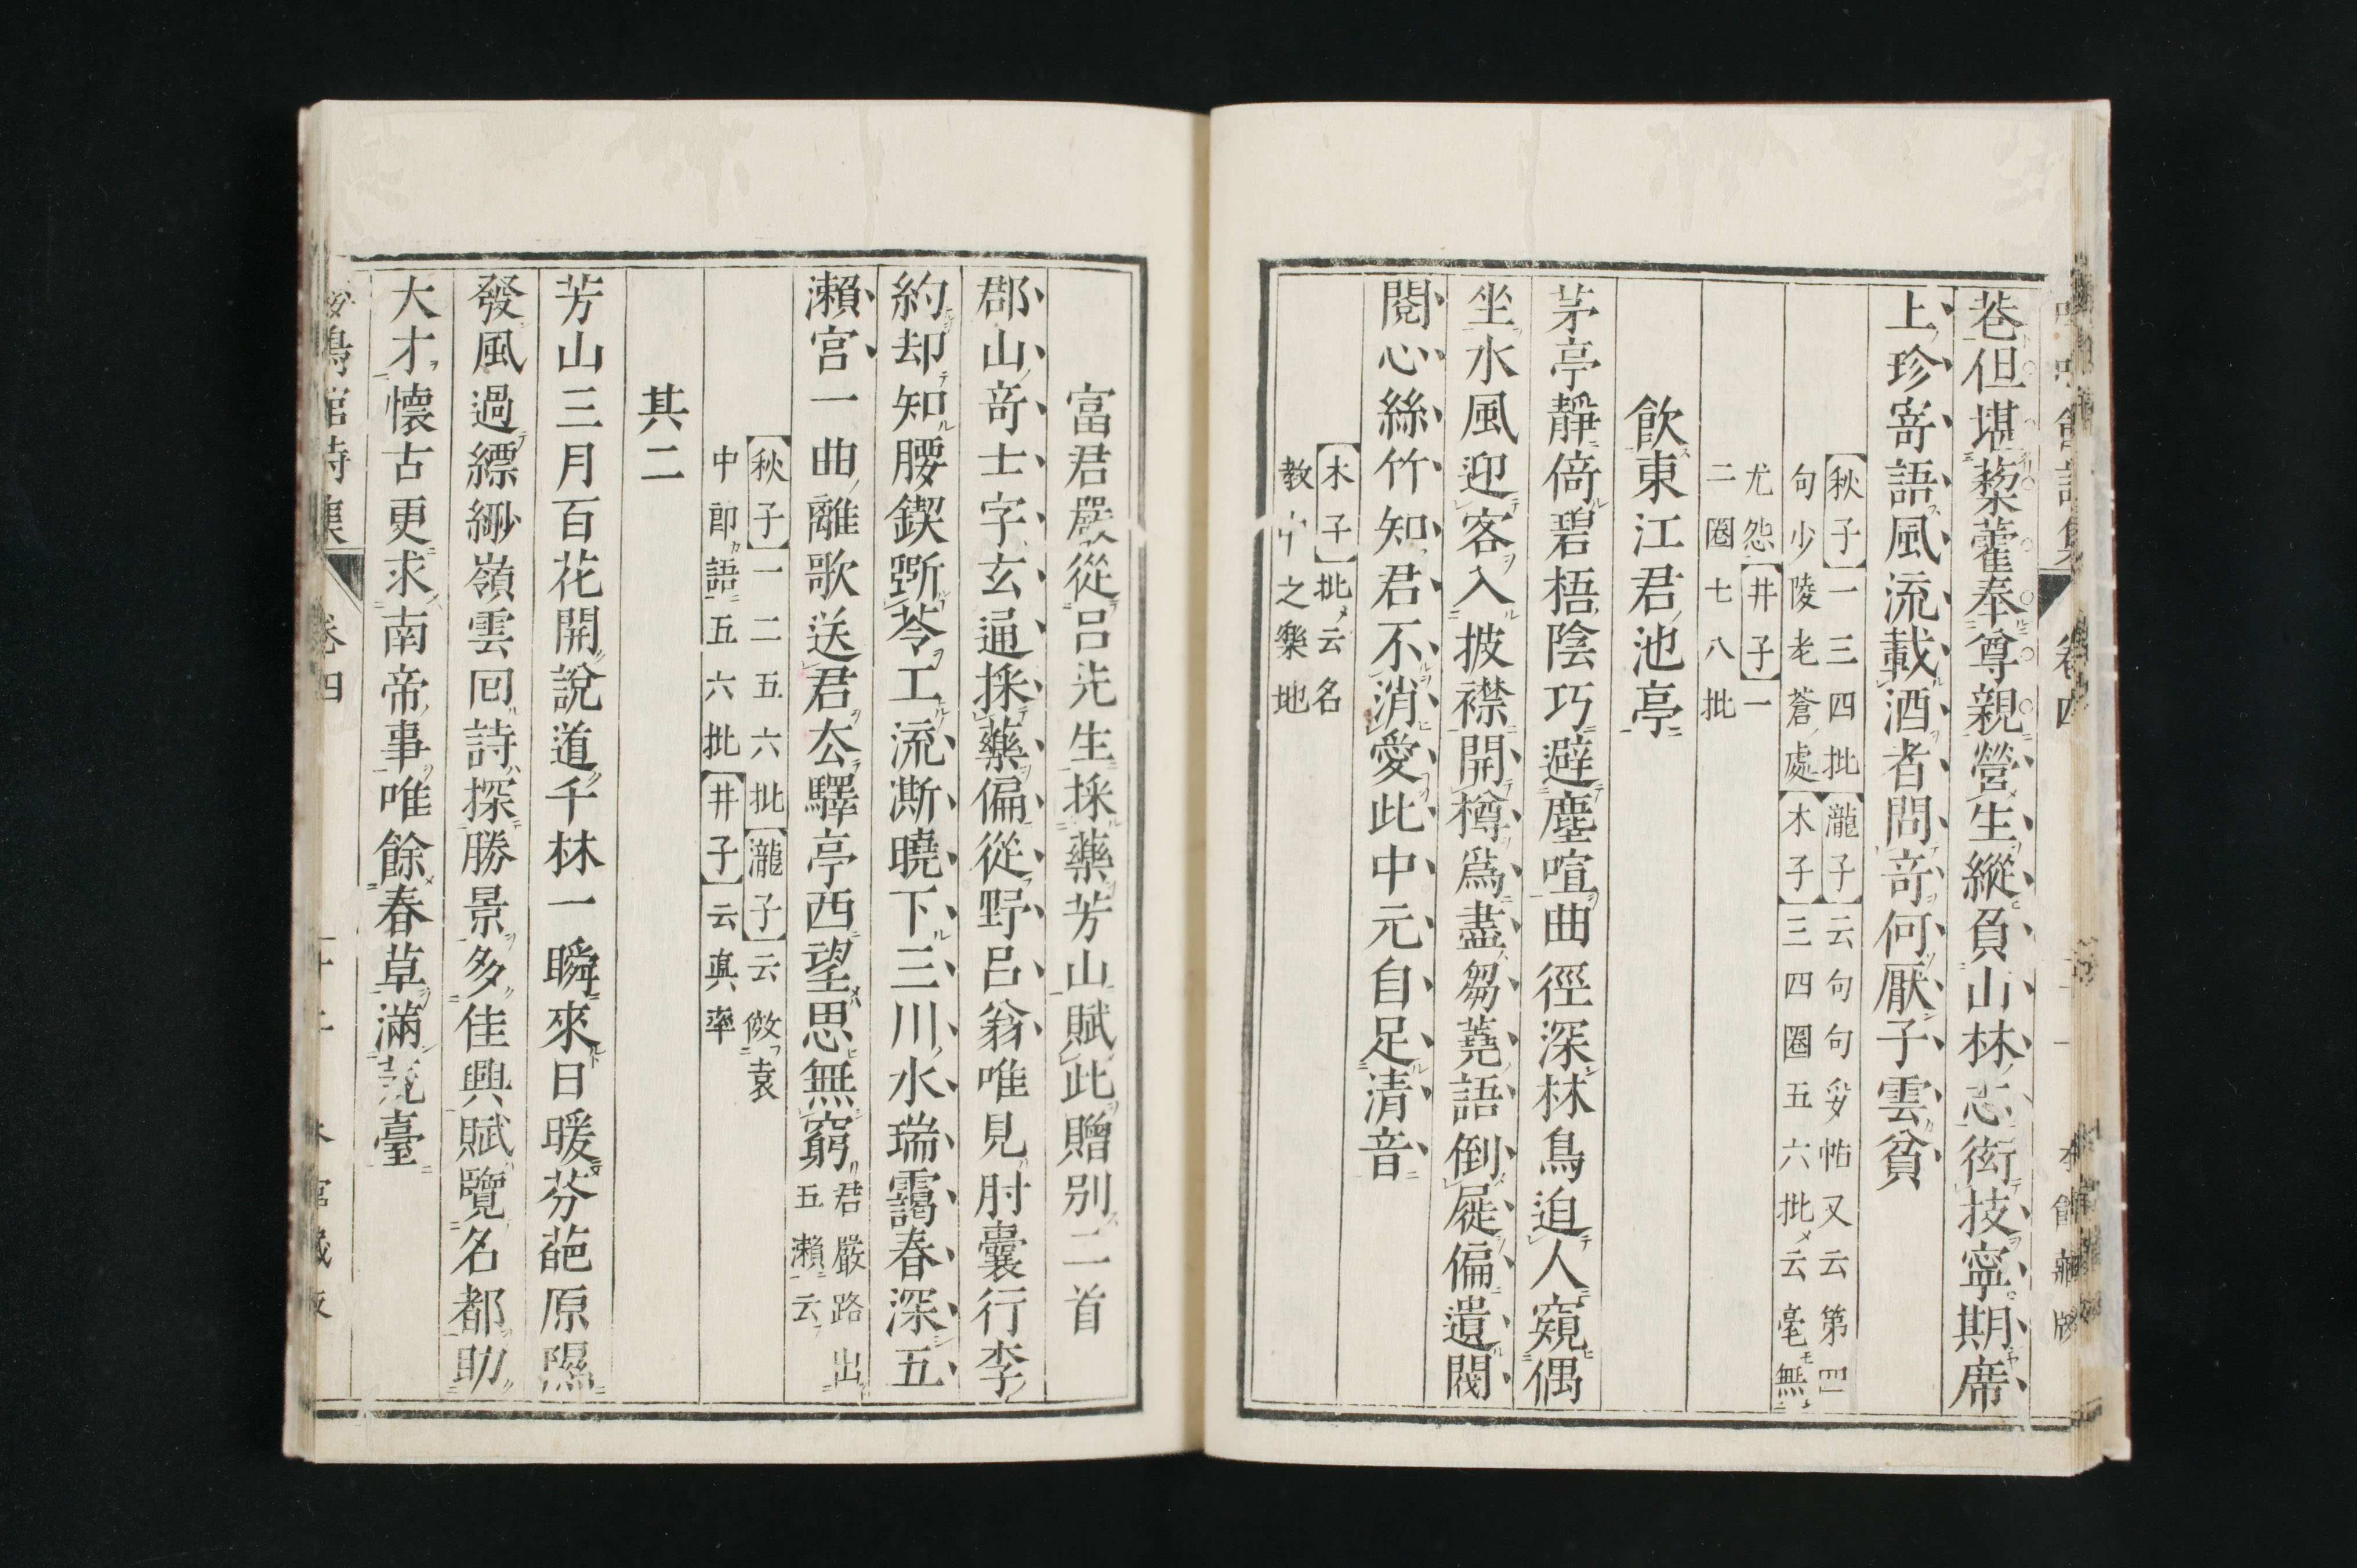 巷但堪藜藿奉尊親營生縱負山林志衒技寧期席
上珍寄語風流載酒者問奇何厭子雲貧
【秋子】一三四批【瀧子】云句句妥帖又云第四
句少陵老蒼處【木子】三四圈五六批云毫無
尤怨【井子】一
二圈七八批
飲東江君池亭
茅亭靜倚碧梧陰巧避塵喧曲徑深林鳥迫人窺偶
坐水風迎客入披襟開樽爲盡芻蕘語倒屣偏遺閥
閱心絲竹知君不消愛此中元自足清音
【木子】批云名
教中之樂地
富君嚴從呂先生採藥芳山賦此贈別二首
郡山奇士字玄通採藥偏從野呂翁唯見肘囊行李
約却知腰鍥斲苓工流澌曉下三川水瑞靄春深五
瀨宮一曲離歌送君厺驛亭西望思無窮君嚴路出
五瀨云
【秋子】一二五六批【瀧子】云倣袁
中郎語五六批【井子】云眞率
其二
芳山三月百花開說道千林一瞬來日暖芬葩原隰
發風過縹緲嶺雲回詩探勝景多佳興賦覽名都助
大才懷古更求南帝事唯餘春草滿荒臺
鳥館詩集
卷四